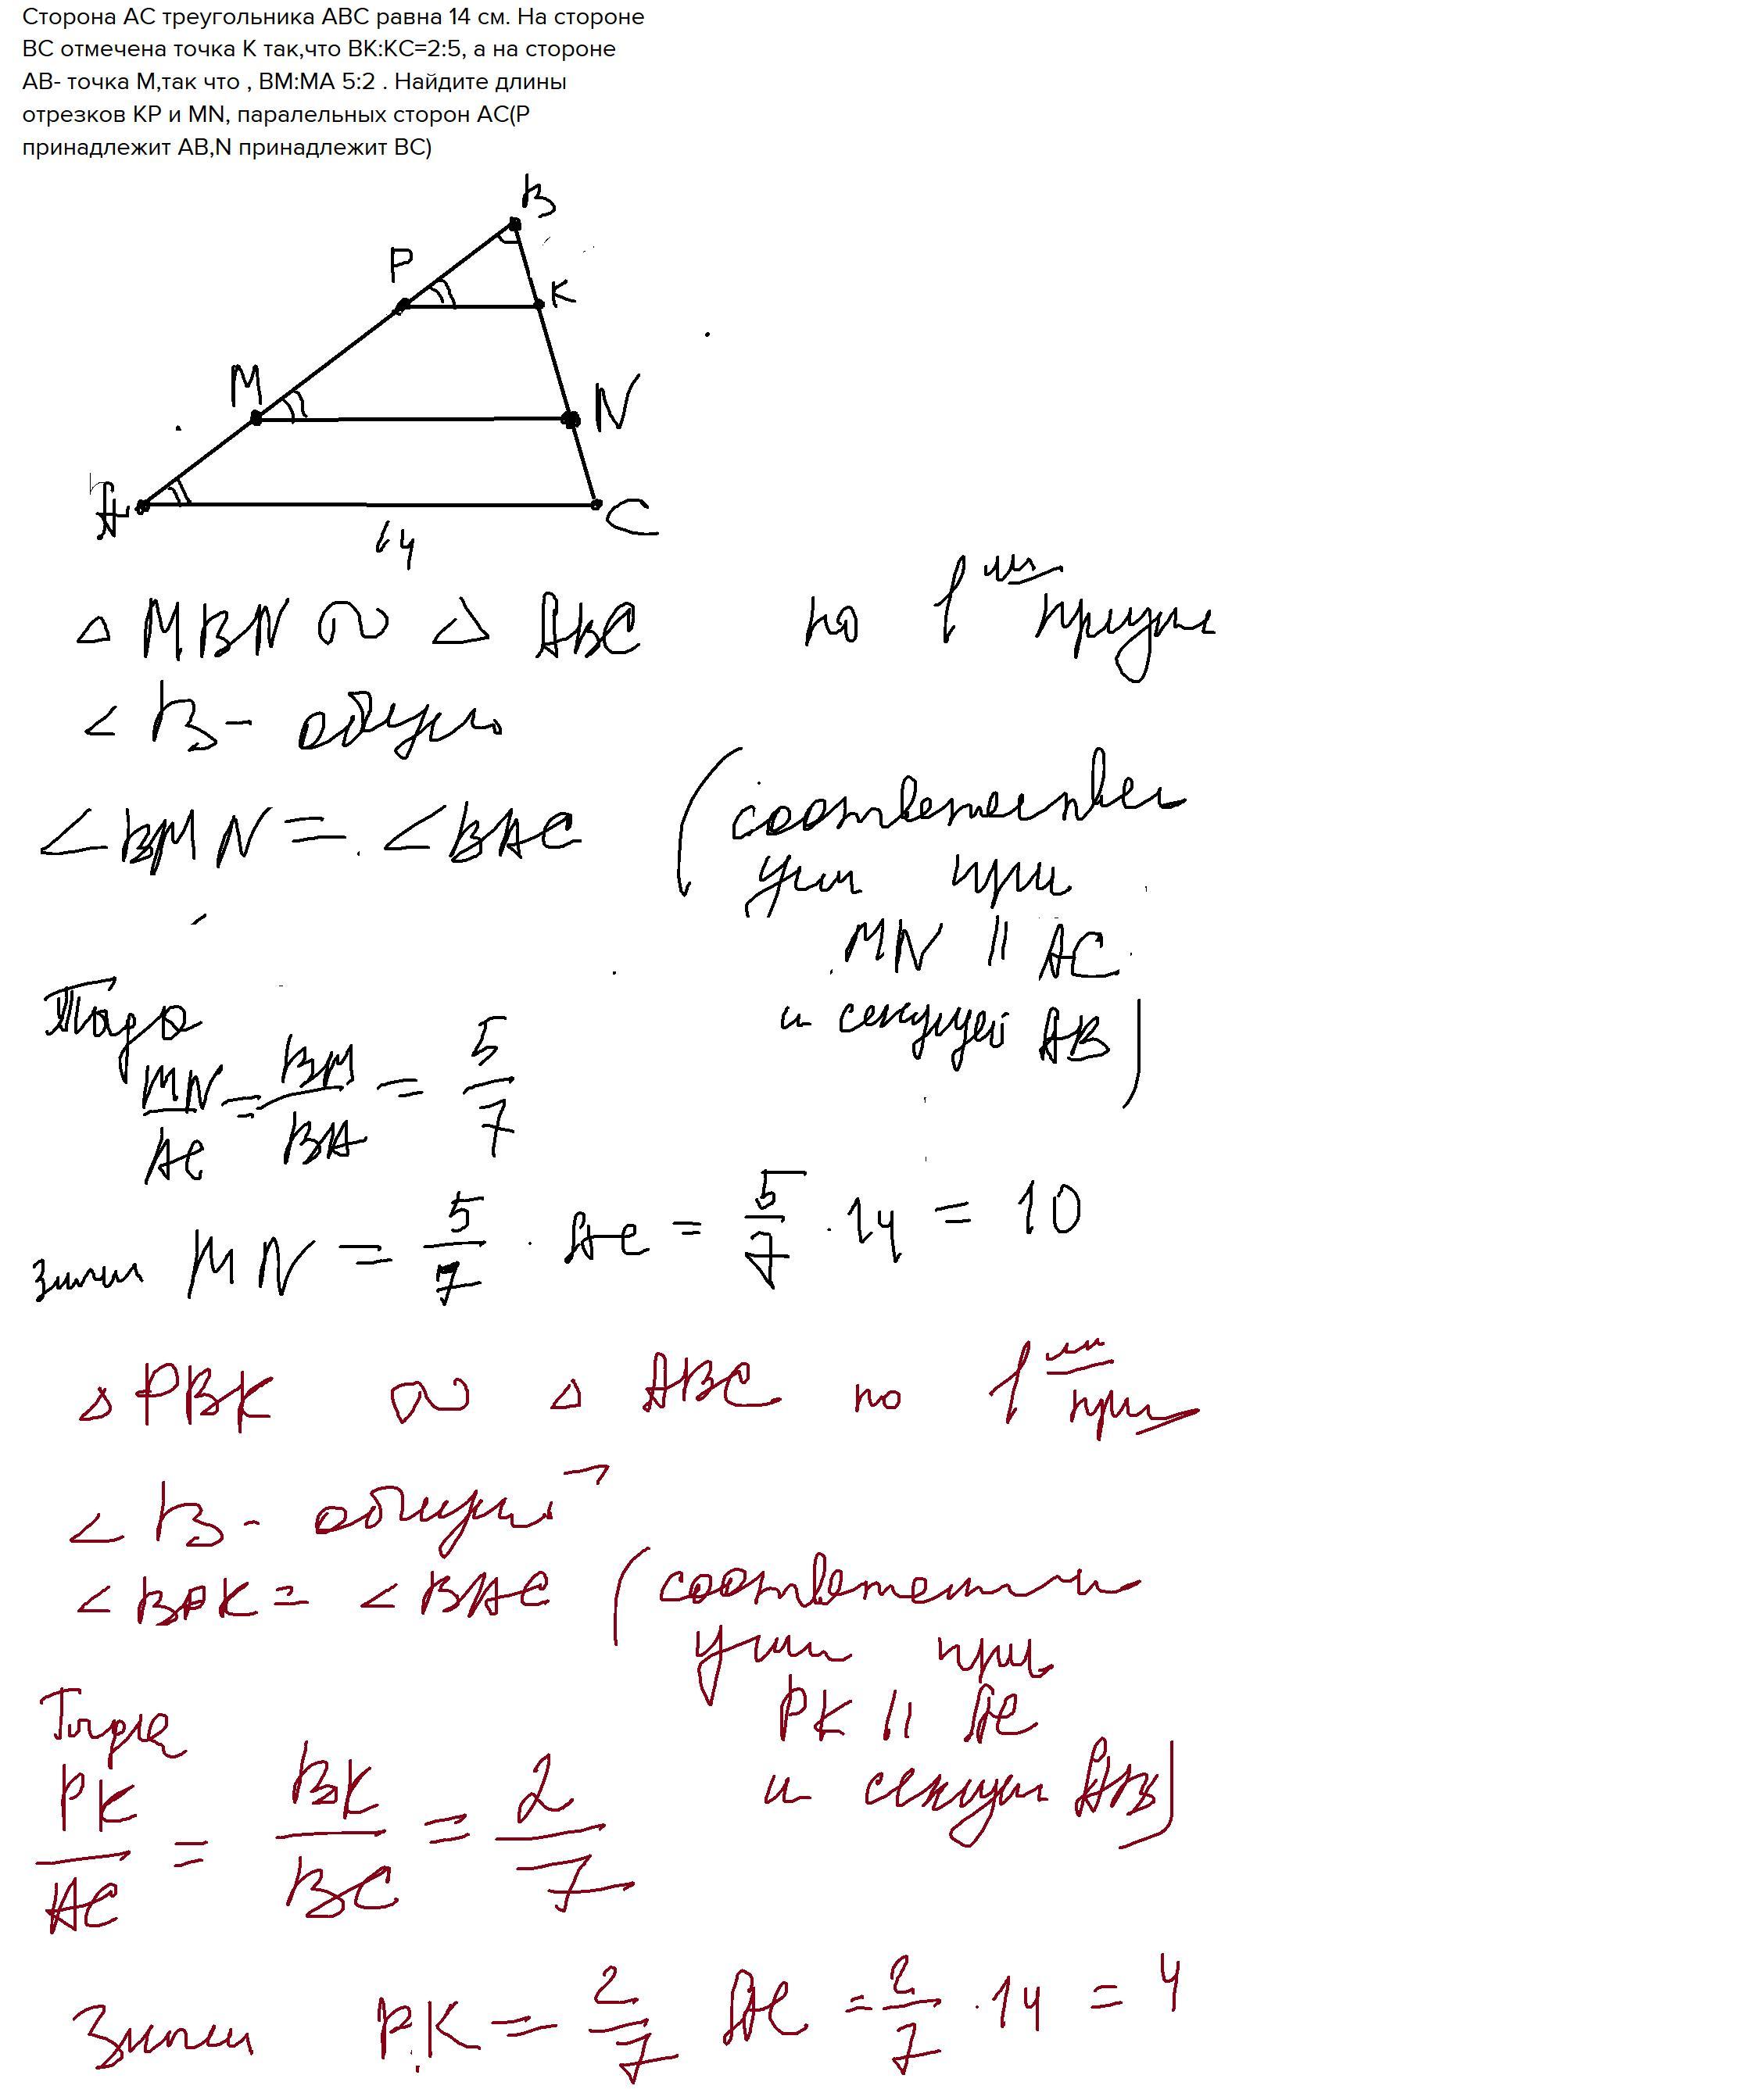 Сторона АС треугольника АВС равна 14 см. На стороне
ВС отмечена точка К так,что ВК:КС=2:5, а на стороне
АВ- точка М,так что , ВМ:МА 5:2 . Найдите длины
отрезков КР и MN, паралельных сторон АС(Р
принадлежит АВ,N принадлежит ВС)
B
P
K
M
N
A
C
14
△ MBN ∾ △ ABC по 1
< B - общий
< BMN = < BAC (соответствен
углы при
MN || AC
и секущей AB)
Тогда
MN/AC = BM/BA = 5/7
Значит MN = 5/7 · AC = 5/7 · 14 = 10
△ PBK ∾ △ ABC по 1
< B - общий
< BPK = < BAC (соответствен
углы при
PK || AC
и секущ AB)
Тогда
PK/AC = BK/BC = 2/7
Значит PK = 2/7 AC = 2/7 · 14 = 4